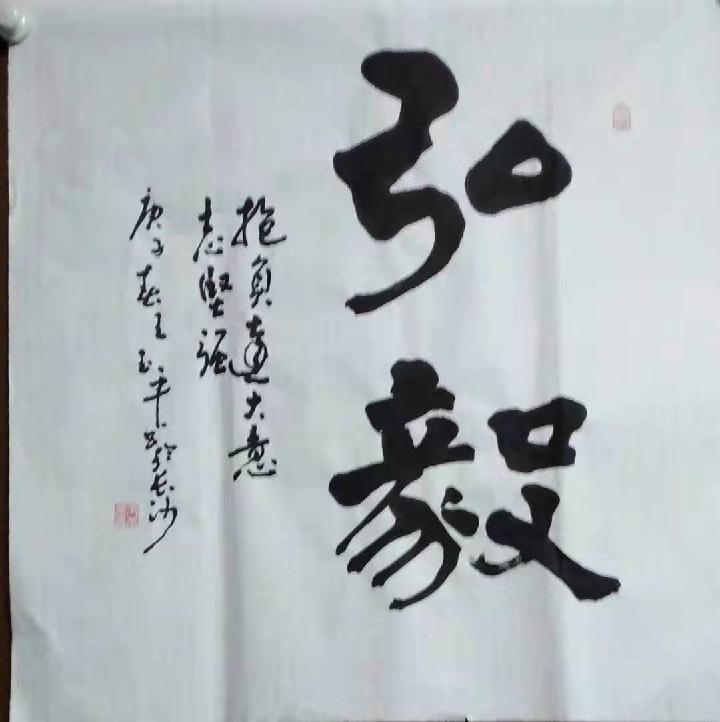 弘毅
抱负远大意
志坚强
庚子春王玉平书於长沙